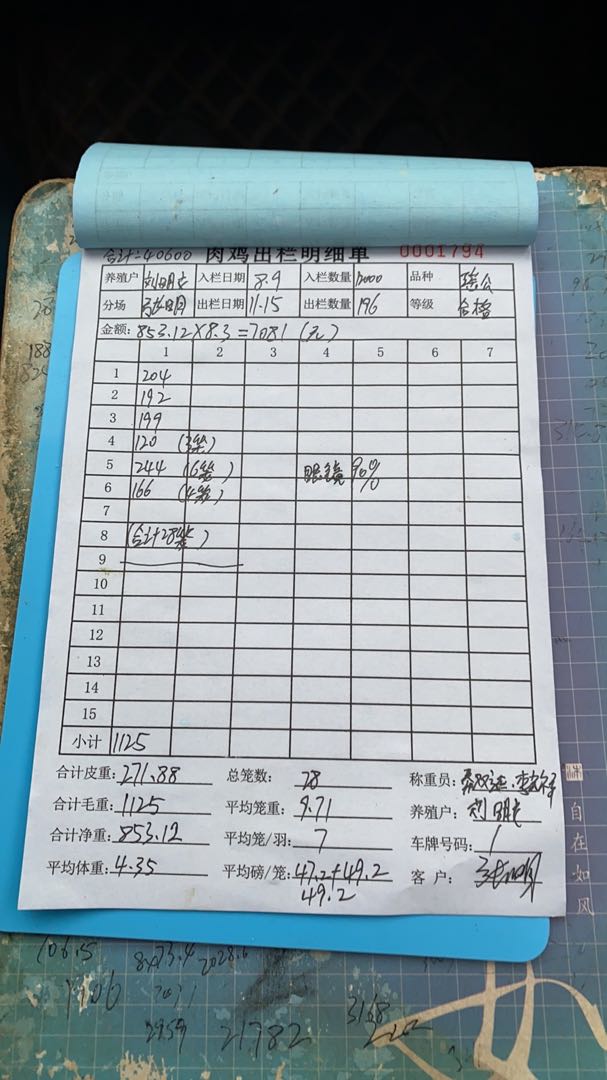 合计=40600 肉鸡出栏明细单 0001794
养殖户 刘明 入栏日期 8.9 入栏数量 12000 品种
分场 出栏日期 11.15 出栏数量 196 等级 合格
金额: 853.12×8.3=7081 (元)
1 2 3 4 5 6 7
1 204
2 192
3 199
4 120 (3笼)
5 244 (6笼) 眼镜90%
6 166 (4笼)
7
8 (合计28笼)
9
10
11
12
13
14
15
小计 1125
合计皮重: 271.88 总笼数: 28 称重员:
合计毛重: 1125 平均笼重: 9.71 养殖户: 刘明
合计净重: 853.12 平均笼/羽: 7 车牌号码: 1
平均体重: 4.35 平均磅/笼: 47.2+49.2 客户:
49.2
自在如风
106.5
8×73.4
2028.6
1706
2959
21782
3168